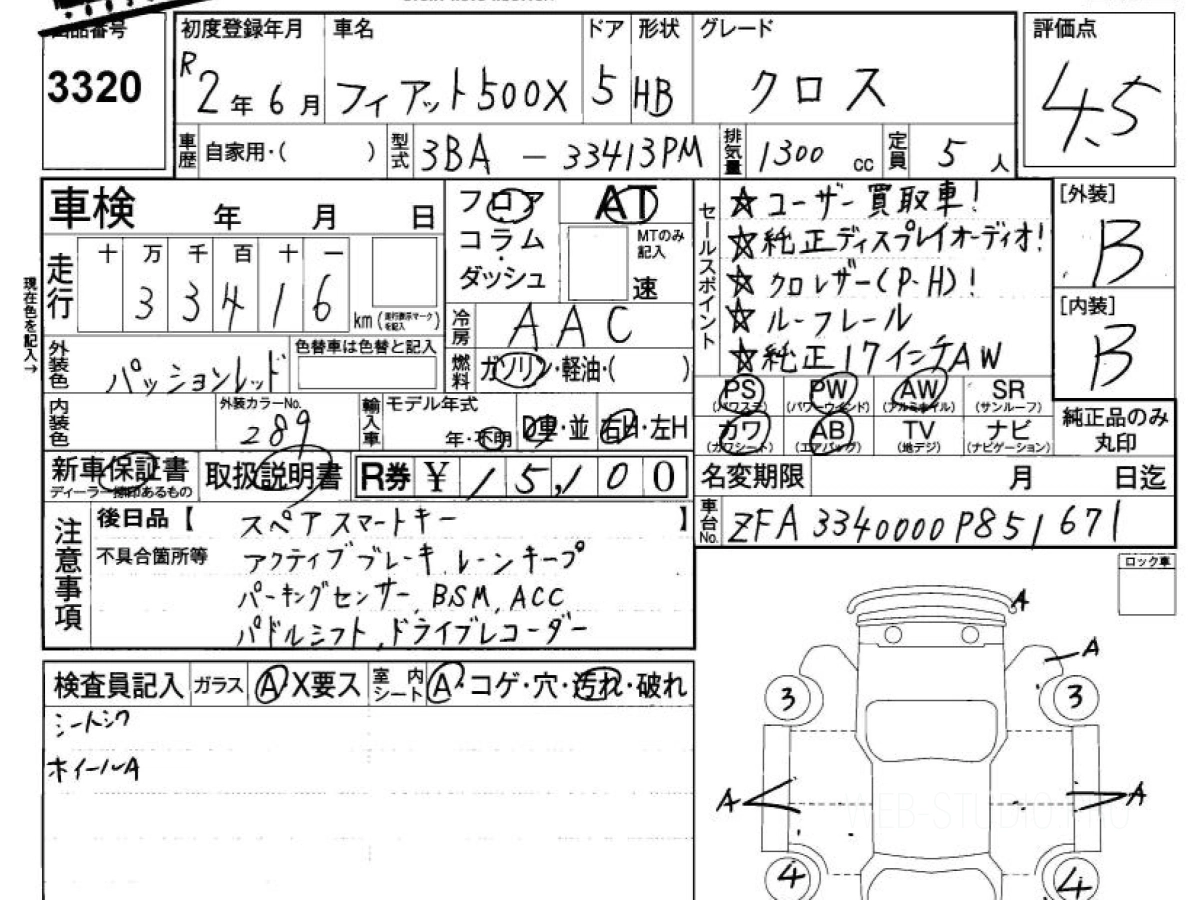 出品番号
3320
初度登録年月
R2年6月
車名
フィアット500X
ドア
5
形状
HB
グレード
クロス
評価点
4.5
車歴 自家用・( )
型式 3BA - 33413PM
排気量 1300 cc
定員 5 人
車検 年 月 日
走行 十 万 千 百 十 一
3 3 4 1 6
km(走行表示マークを記入)
現在色を記入→
フロア
コラム
ダッシュ
AT
MTのみ記入
速
冷房 AAC
燃料 ガソリン・軽油・( )
セールスポイント
☆ユーザー買取車!
☆純正ディスプレイオーディオ!
☆クロレザー(P・H)!
☆ルーフレール
☆純正17インチAW
[外装]
B
[内装]
B
外装色 パッションレッド
色替車は色替と記入
内装色
外装カラーNo.
289
輸入車 モデル年式
年・不明
D車・並
右H・左H
PS (パワステ) PW (パワーウインド) AW (アルミホイル) SR (サンルーフ)
カワ (カワシート) AB (エアバッグ) TV (地デジ) ナビ (ナビゲーション)
純正品のみ丸印
新車保証書
ディーラー捺印あるもの
取扱説明書
R券 ¥ 15,100
名変期限 月 日迄
車台No. ZFA3340000P851671
注意事項
後日品【 スペアスマートキー 】
不具合箇所等 アクティブブレーキ, レーンキープ
パーキングセンサー, BSM, ACC
パドルシフト, ドライブレコーダー
ロック車
検査員記入 ガラス A・X要ス 室内シート A・コゲ・穴・汚れ・破れ
シートシワ
ホイールA
A
A
3
3
A
A
4
4
WEB-STUDIO.PRO